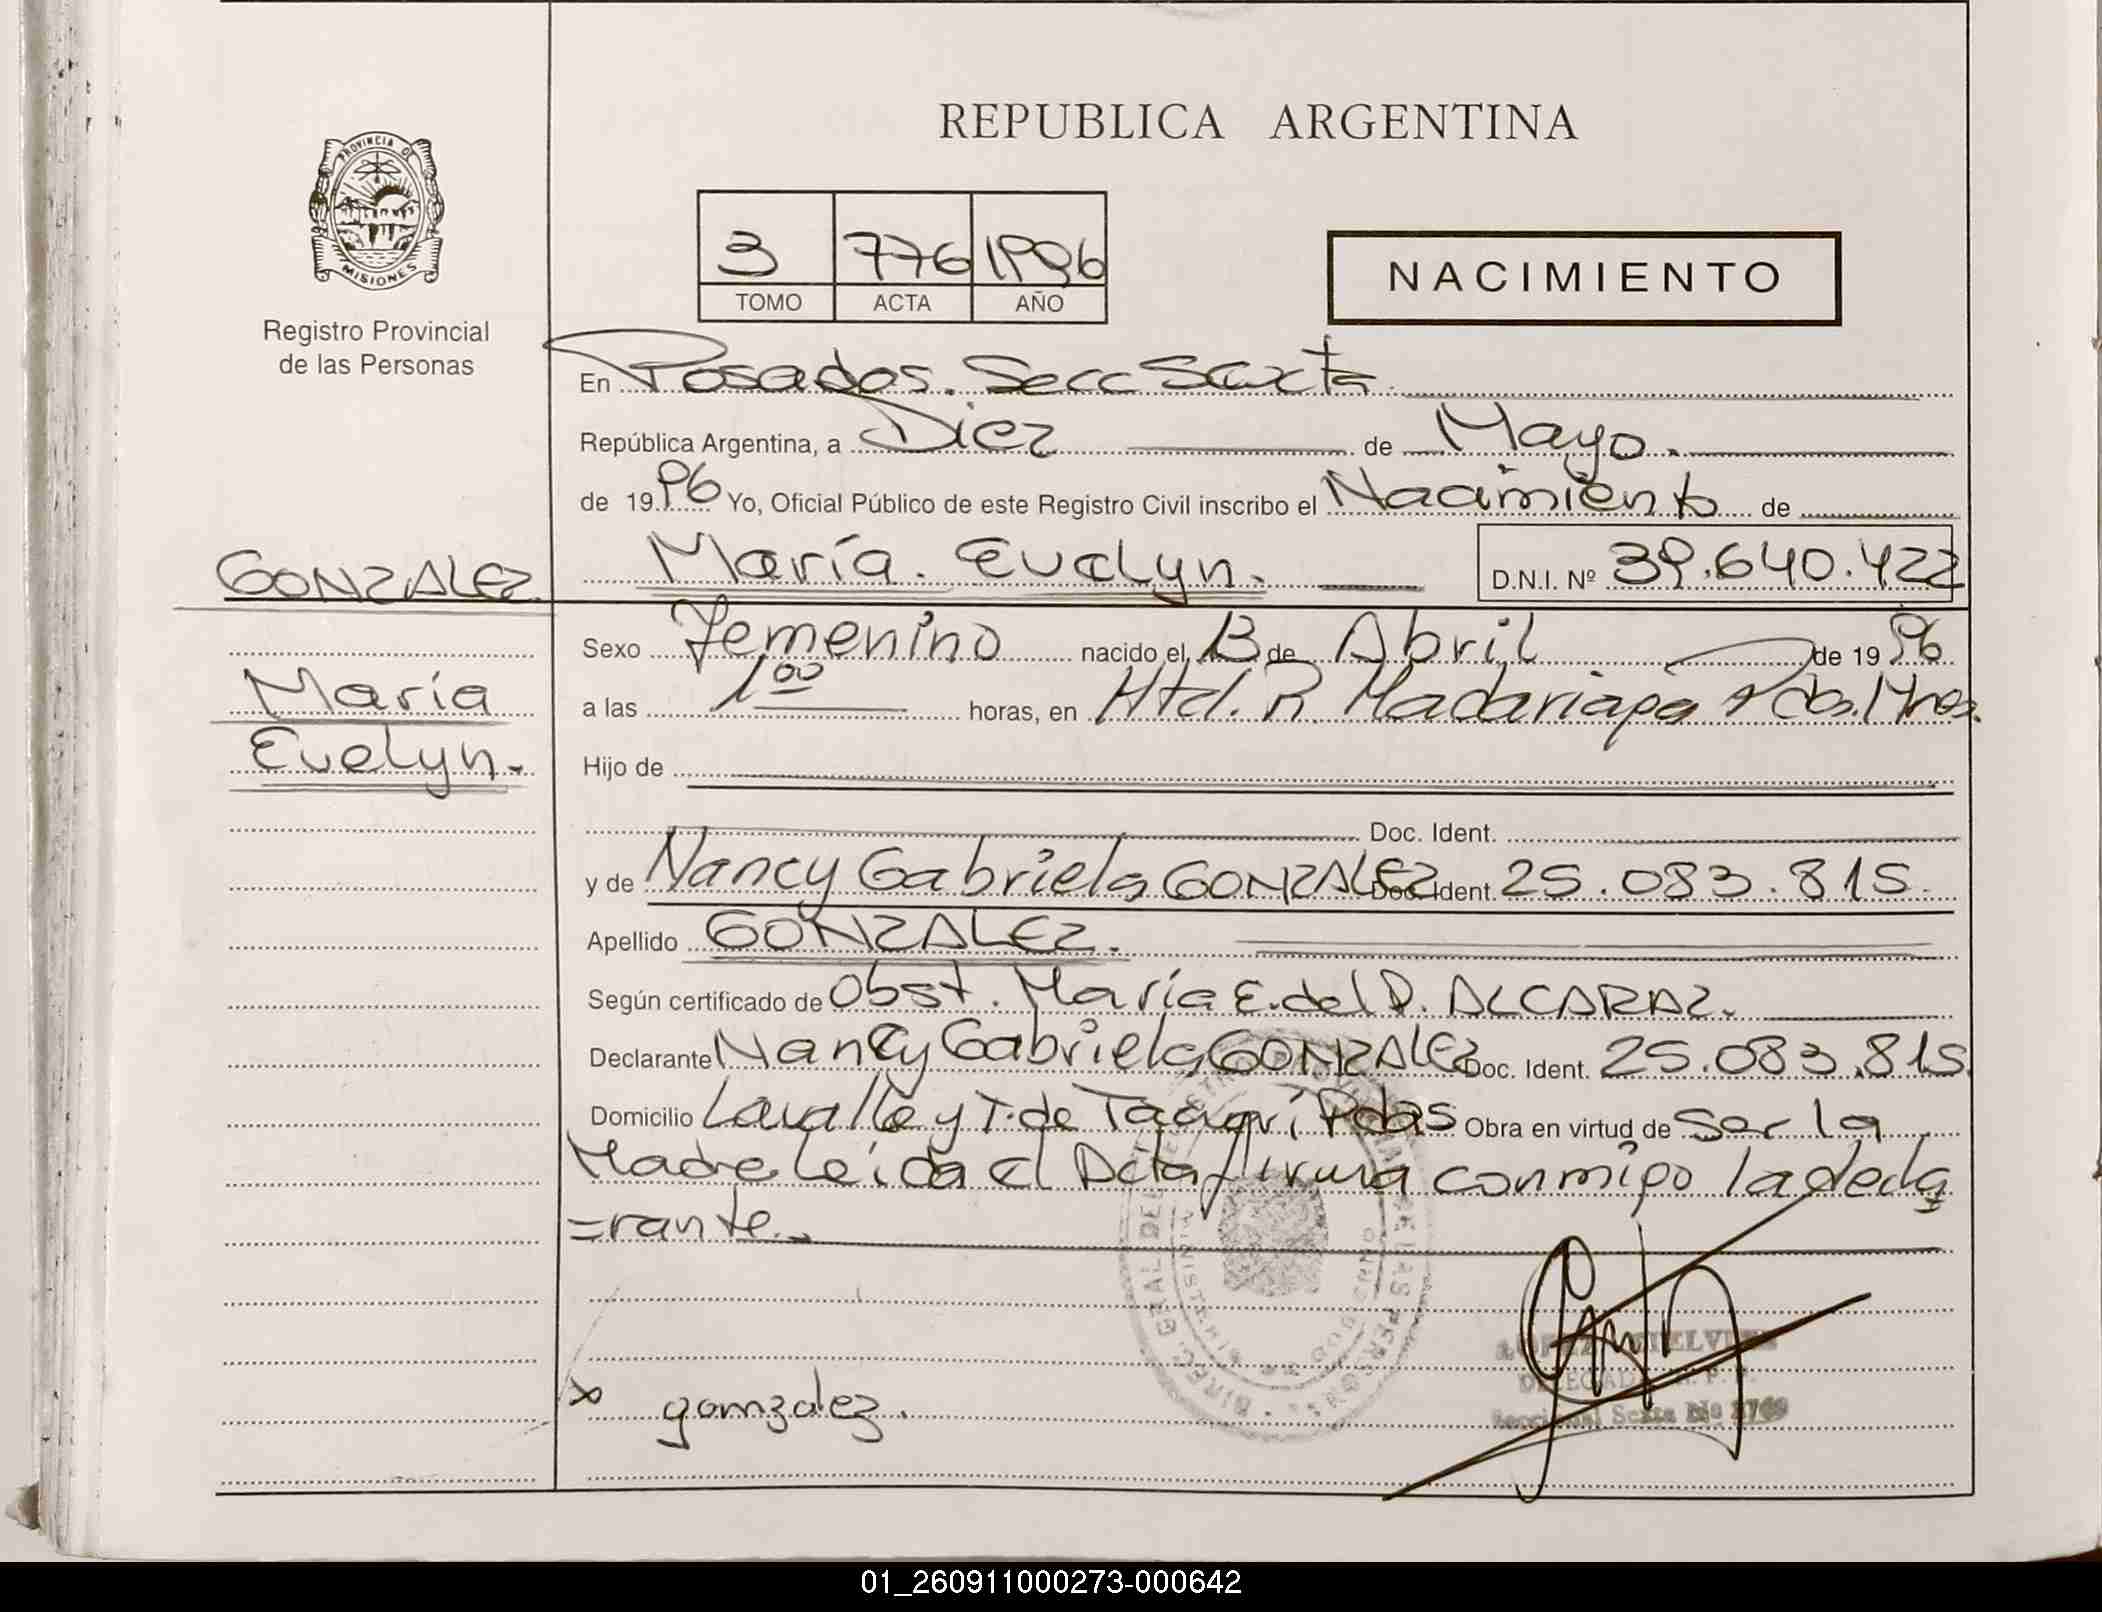 REPUBLICA ARGENTINA
PROVINCIA DE
MISIONES
Registro Provincial
de las Personas
3 776 1996
TOMO ACTA AÑO
NACIMIENTO
En Posadas. Secc Sexta
República Argentina, a Diez de Mayo.
de 1996 Yo, Oficial Público de este Registro Civil inscribo el Nacimiento de
María. Evelyn. D.N.I. Nº 39.640.422
GONZALEZ
María
Evelyn.
Sexo Femenino nacido el 13 de Abril de 1996
a las 1 00 horas, en Htal. R. Madariaga Pdas. Mnes.
Hijo de
Doc. Ident.
y de Nancy Gabriela GONZALEZ Doc. Ident. 25.083.815.
Apellido GONZALEZ.
Según certificado de Obst. María E. del P. ALCARAZ.
Declarante Nancy Gabriela GONZALEZ Doc. Ident. 25.083.815
Domicilio Lavalle y T. de Pdas Obra en virtud de Ser la
Madre Leída el Acta firma conmigo la decla
=rante.-
x gonzalez.
Seccional Sexta
01_260911000273-000642